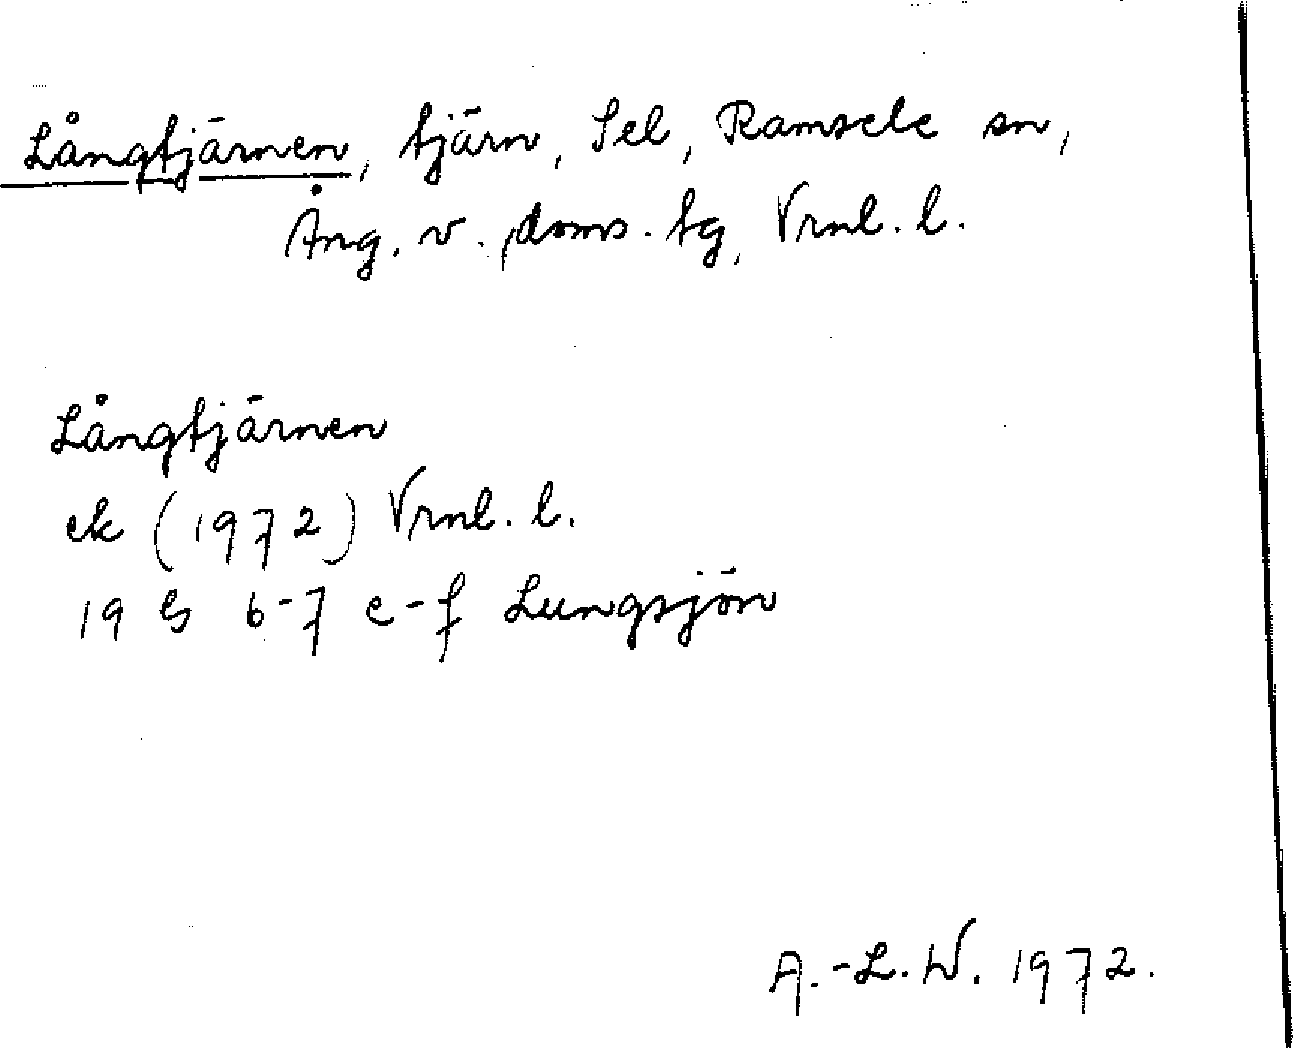 Långtjärnen, tjärn, Sel, Ramsele sn,
Ång. v. doms. tg, Vrnl. l.
Långtjärnen
ek (1972) Vrnl. l.
19 G 6-7 e-f Lungsjön
A.-L. W. 1972.